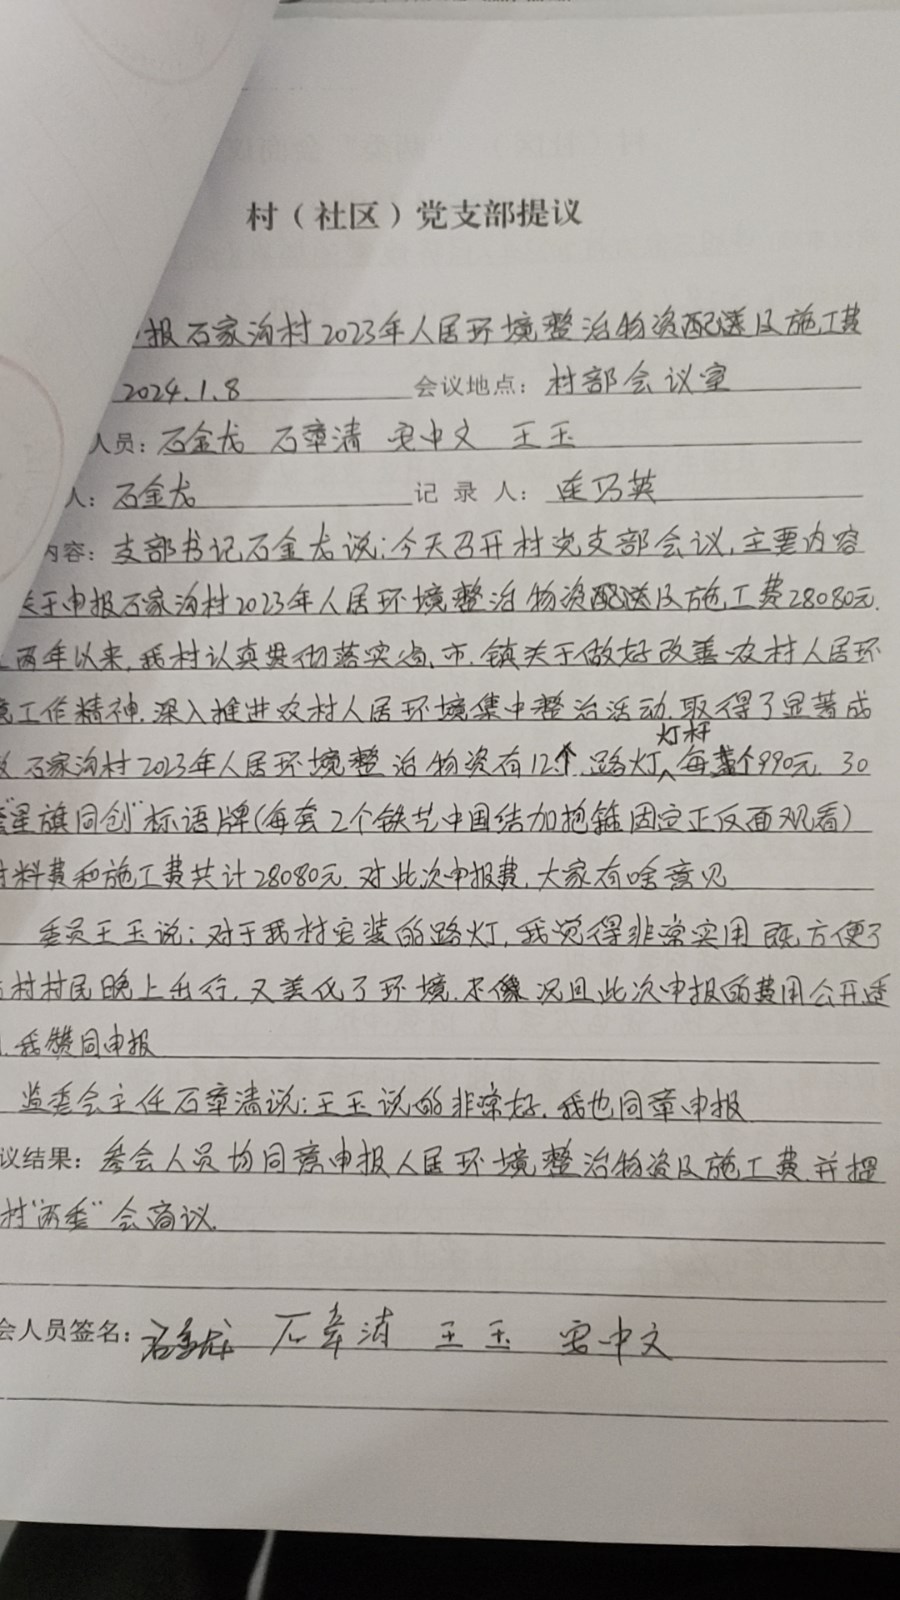 村（社区）党支部提议
报石家沟村2023年人居环境整治物资配送及施工费
2024.1.8 会议地点：村部会议室
人员：石金龙 石章清 安中文 王玉
人：石金龙 记录人：连巧英
内容：支部书记石金龙说：今天召开村党支部会议，主要内容
关于申报石家沟村2023年人居环境整治物资配送及施工费28080元.
两年以来，我村认真贯彻落实省、市、镇关于做好改善农村人居环
境工作精神，深入推进农村人居环境集中整治活动，取得了显著成
效 石家沟村2023年人居环境整治物资有12个路灯灯杆每个990元，30
套"星旗同创"标语牌(每套2个铁艺中国结加抱箍固定正反面观看)
材料费和施工费共计28080元，对此次申报费，大家有啥意见
委员王玉说：对于我村安装的路灯，我觉得非常实用 既方便了
村村民晚上出行，又美化了环境， 况且此次申报的费用公开透
，我赞同申报
监委会主任石章清说：王玉说的非常好，我也同意申报
议结果：参会人员均同意申报人居环境整治物资及施工费，并提
村"两委"会商议.
会人员签名：石金龙 石章清 王玉 安中文